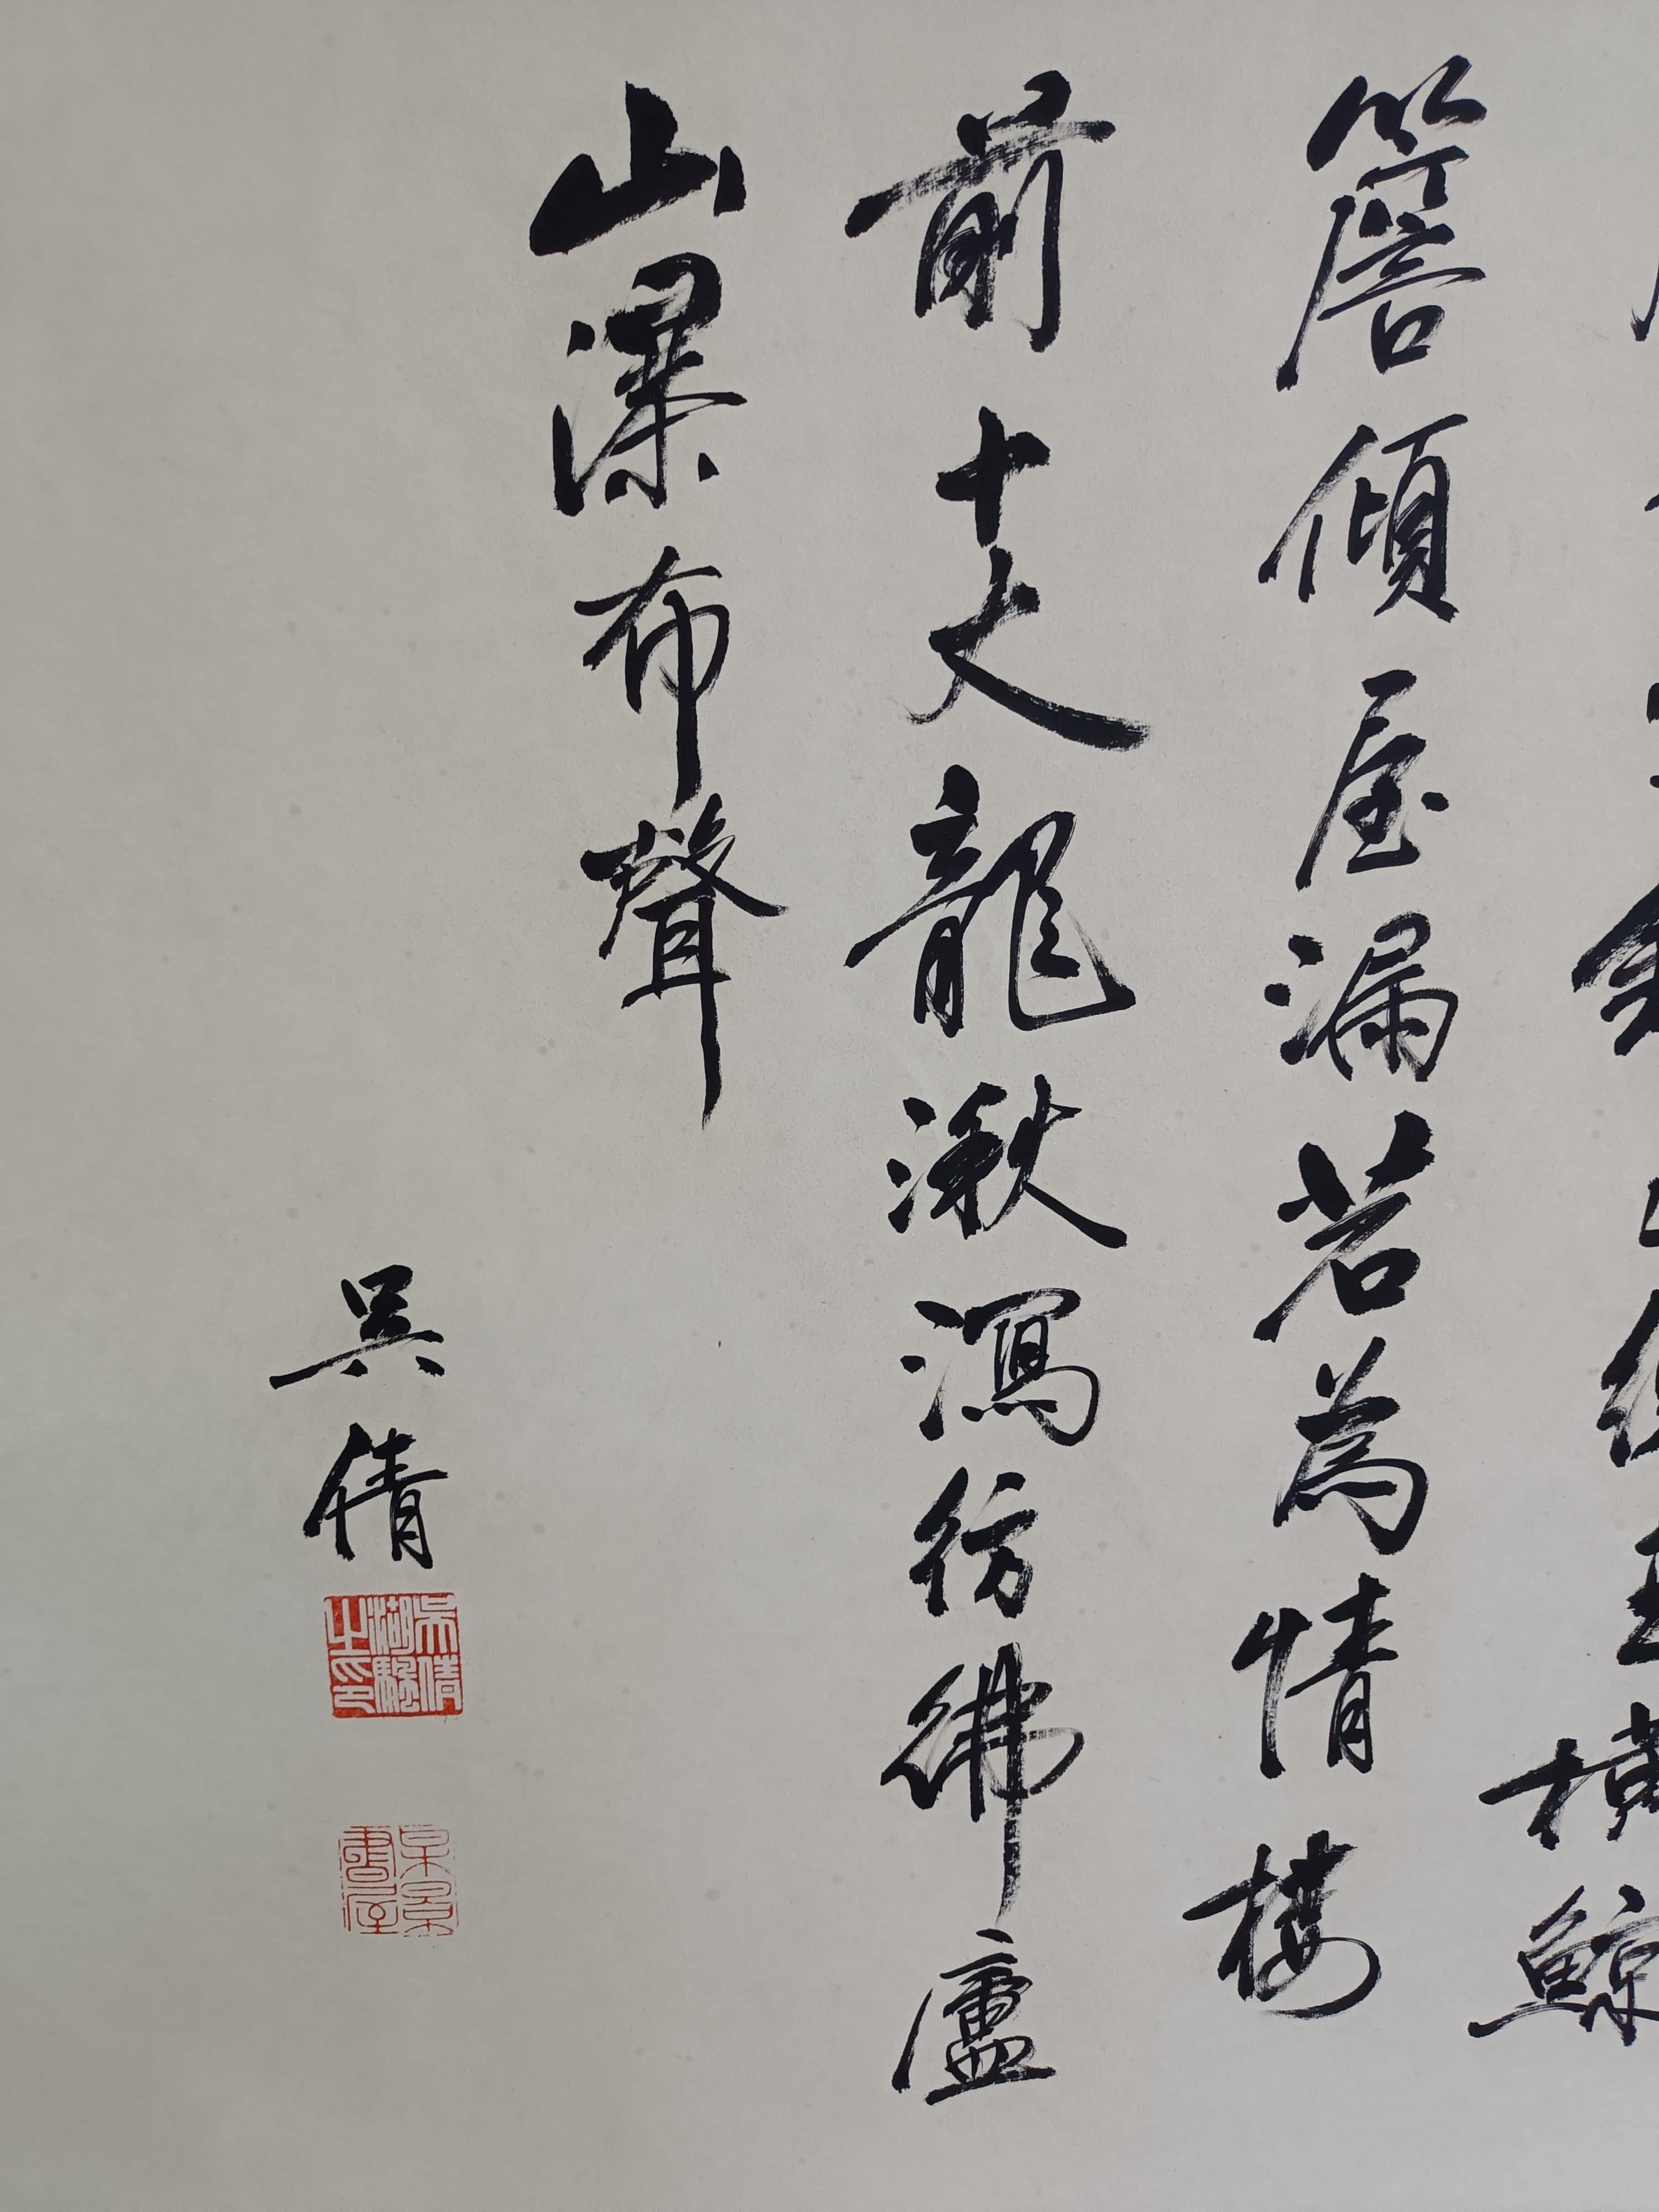 橫鯨
簷傾屋漏若為情樓
前十丈龍湫瀉彷彿廬
山瀑布聲
吳倩
吳倩
湖騐
之印
吳㬌
書屋